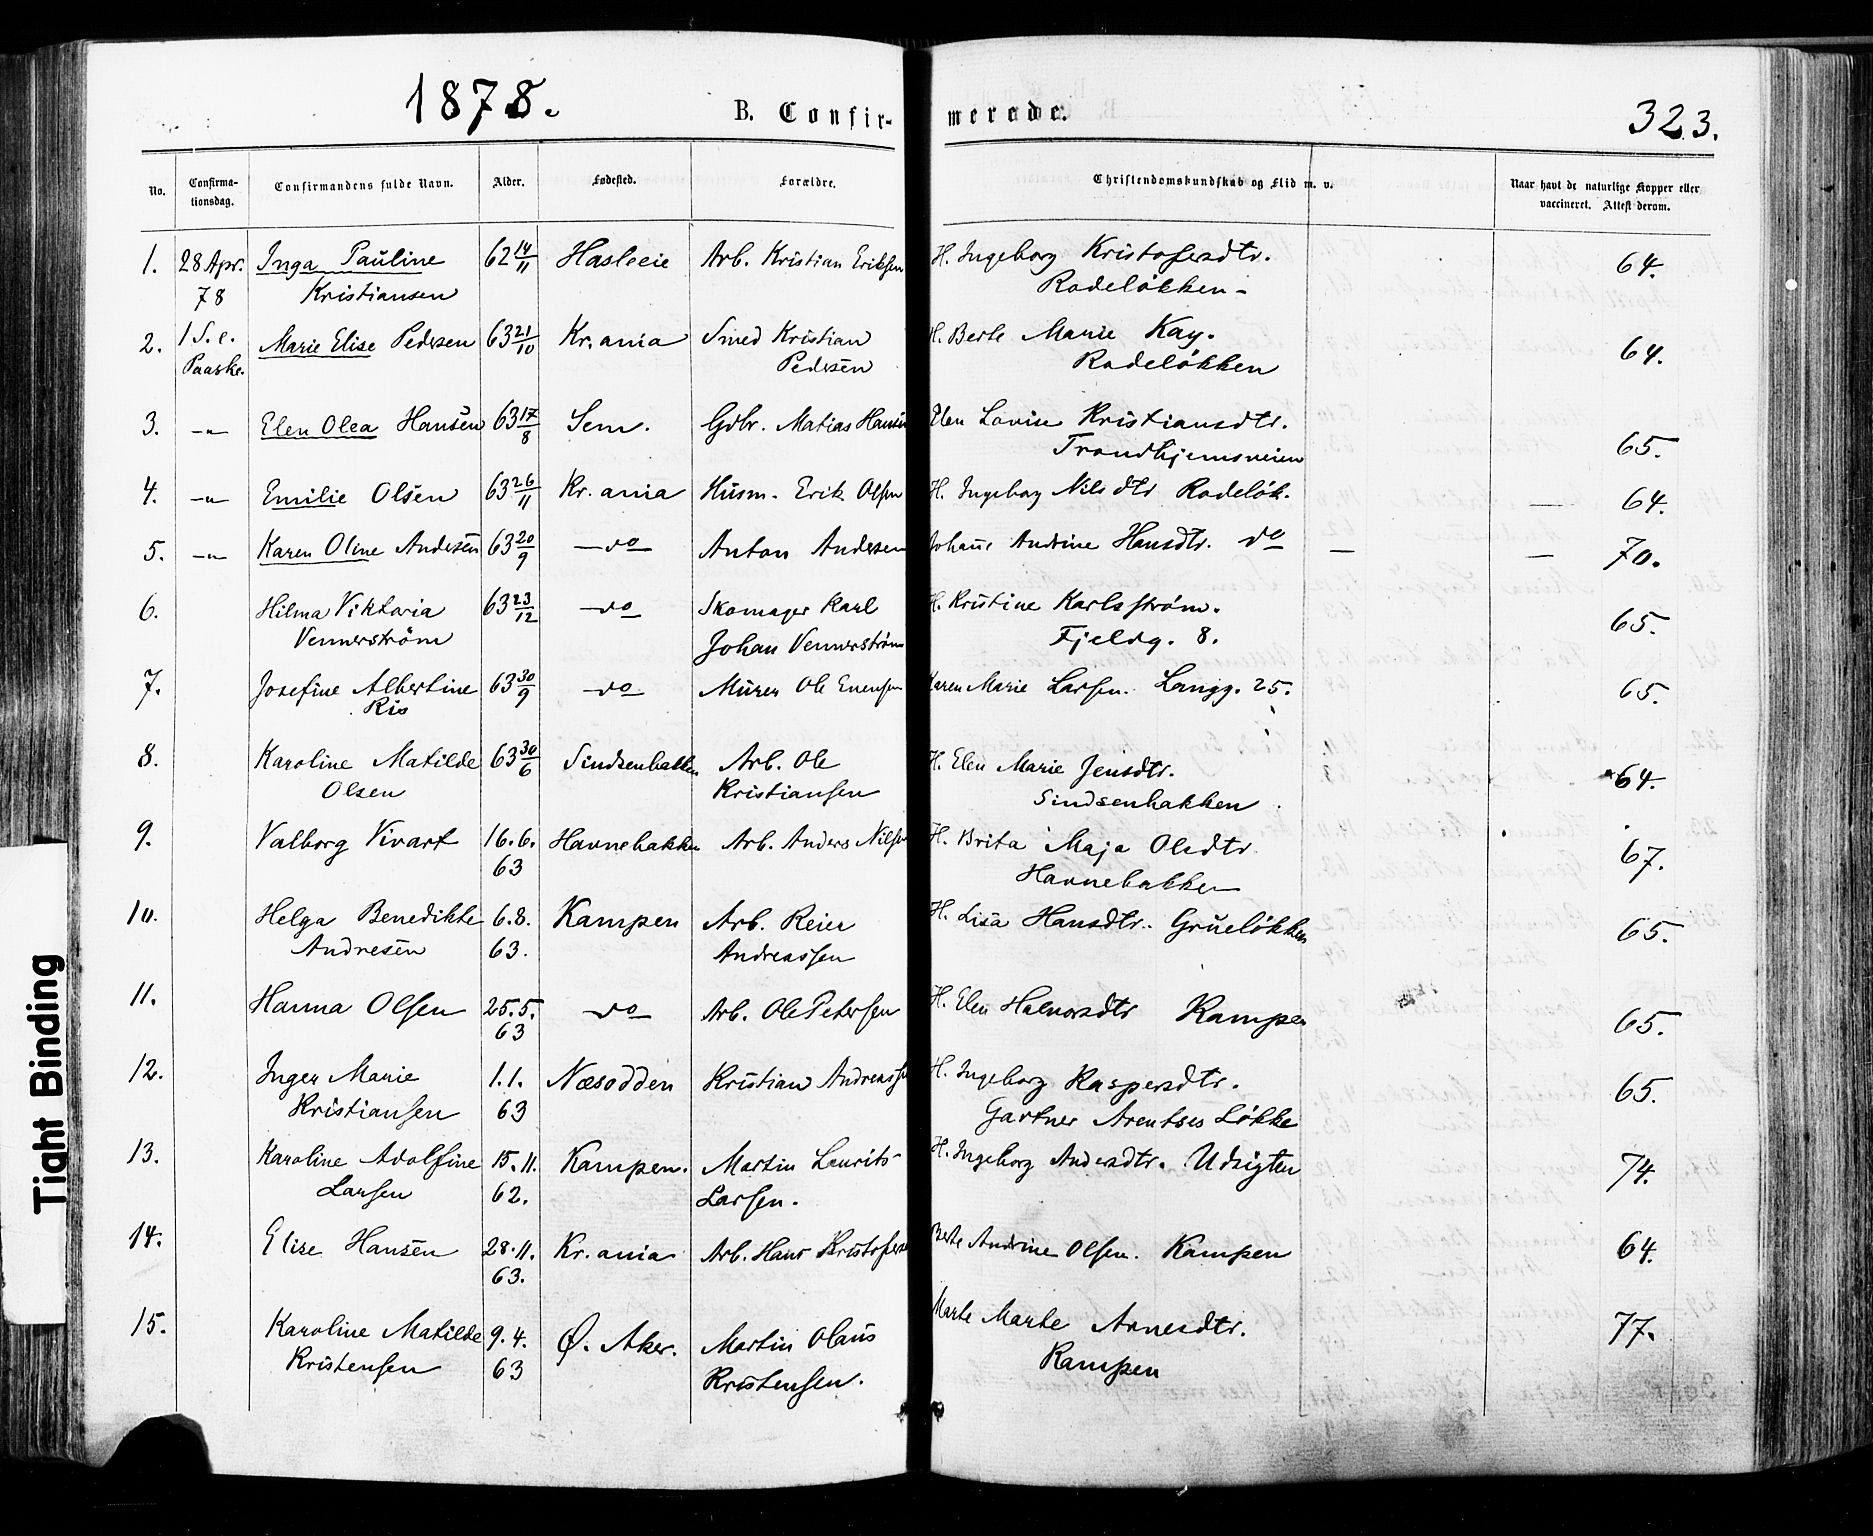 1878.
B. Confir-
merede.
323.
No.
Confirma-
tionsdag.
Confirmandens fulde Navn.
Alder.
Fødested.
Forældre.
Christendomskundskab og Flid m. v.
Naar havt de naturlige Kopper eller
vaccineret. Attest derom.
1. 28 Apr. Inga Pauline 62 14/11 Hasleeie Arb. Kristian Eriksen H. Ingeborg Kristofersdtr. 64.
78 Kristiansen Rodeløkken -
2. 1 S. e. Marie Elise Pedersen 63 21/10 Kr.ania Smed Kristian H. Berte Marie Kay. 64.
Paaske. Pedersen Rodeløkken
3. -"- Elen Olea Hansen 63 17/8 Sem. Gdbr. Matias Hansen Elen Lovise Kristiansdtr. 65.
Trondhjemsveien
4. -"- Emilie Olsen 63 26/11 Kr.ania Husm. Erik Olsen H. Ingeborg Nilsdtr Rodeløk. — 64.
5. -"- Karen Oline Andersen 63 20/9 — do Anton Andersen Johane Andrine Hansdtr. do — — 70.
6. Hilma Viktoria 63 23/12 — do Skomager Karl H. Kristine Karlsstrøm. 65.
Vennerstrøm Johan Vennerstrøm Fjeldg. 8.
7. Josefine Albertine 63 30/9 — do Murer Ole Evensen Karen Marie Larsen. Langg. 25. 65.
Ris
8. Karoline Matilde 63 30/6 Sindsenbakken Arb. Ole H. Elen Marie Jensdtr. 64.
Olsen Kristiansen Sindsenbakken
9. Valborg Kvart 16.6. Havnebakken Arb. Anders Nilsen H. Brita Maja Olsdtr 67.
63 Havnebakken
10. Helga Benedikte 6.8. Kampen Arb. Reier H. Lisa Hansdtr. Grueløkken 65.
Andresen 63. Andreassen
11. Hanna Olsen 25.5. — do Arb. Ole Petersen H. Elen Halvorsdtr Kampen 65.
63
12. Inger Marie 1.1. Næsodden Kristian Andreassen H. Ingeborg Kaspersdtr. 65.
Kristiansen 63 Gartner Arentses Løkke
13. Karoline Adolfine 15.11. Kampen. Martin Laurits H. Ingeborg Andersdtr. Udsigten 74.
Larsen 62. Larsen.
14. Elise Hansen 28.11. Kr.ania Arb. Hans Kristofersen Berte Andrine Olsen. Kampen 64.
63.
15. Karoline Matilde 9.4. Ø. Aker. Martin Olaus Marte Marte Arnesdtr. 77.
Kristensen 63 Kristensen. Kampen
Tight Binding